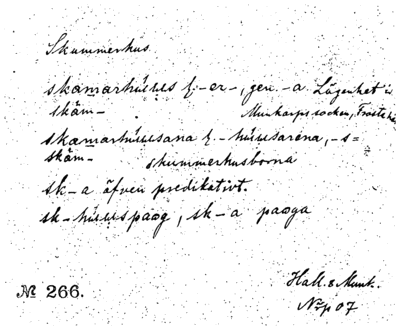 Skummerhus.
skæmarhúus f. -er-, gen. -a Lägenhet i
skäm- Munkarps socken, Frosta
skæmarhúusana f. -húusarena, -s=
skäm- skummerhusborna
sk-a äfven predikativt.
sk-húuspaog, sk-a paoga
Hall. & Munk.
№ 266. 07